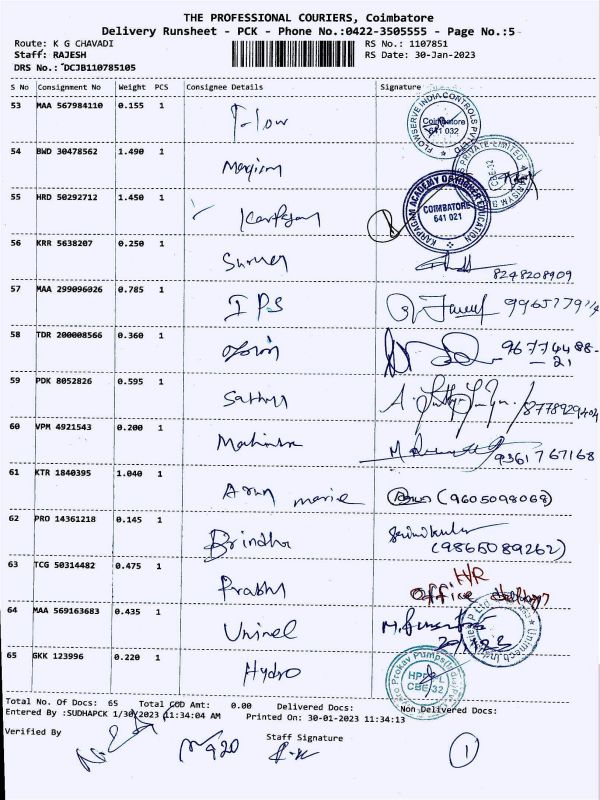 THE PROFESSIONAL COURIERS, Coimbatore
Delivery Runsheet - PCK - Phone No.:0422-3505555 - Page No.:5
Route: K G CHAVADI RS No.: 1107851
Staff: RAJESH RS Date: 30-Jan-2023
DRS No.: DCJB110785105
S No Consignment No Weight PCS Consignee Details Signature
53 MAA 567984110 0.155 1 Flow FLOWSERVE INDIA CONTROLS PVT LTD Coimbatore 641 032
54 BWD 30478562 1.490 1 PRIVATE LIMITED CBE-32
55 HRD 50292712 1.450 1 Karpagam KARPAGAM ACADEMY OF HIGHER EDUCATION COIMBATORE 641 021
56 KRR 5638207 0.250 1 8248208909
57 MAA 299096026 0.785 1 IPS
58 TDR 200008566 0.360 1 96774488-
21
59 PDK 8052826 0.595 1 Sathya 8778929404
60 VPM 4921543 0.200 1 Mahindra 9361767168
61 KTR 1840395 1.040 1 Arun marie (9605098068)
62 PRO 14361218 0.145 1 Brindha (9865089262)
63 TCG 50314482 0.475 1 Prabhu HR
Office
64 MAA 569163683 0.435 1
65 GKK 123996 0.220 1 Hydro CBE-32
Total No. Of Docs: 65 Total COD Amt: 0.00 Delivered Docs: Non Delivered Docs:
Entered By :SUDHAPCK 1/30/2023 11:34:04 AM Printed On: 30-01-2023 11:34:13
Verified By Staff Signature
1